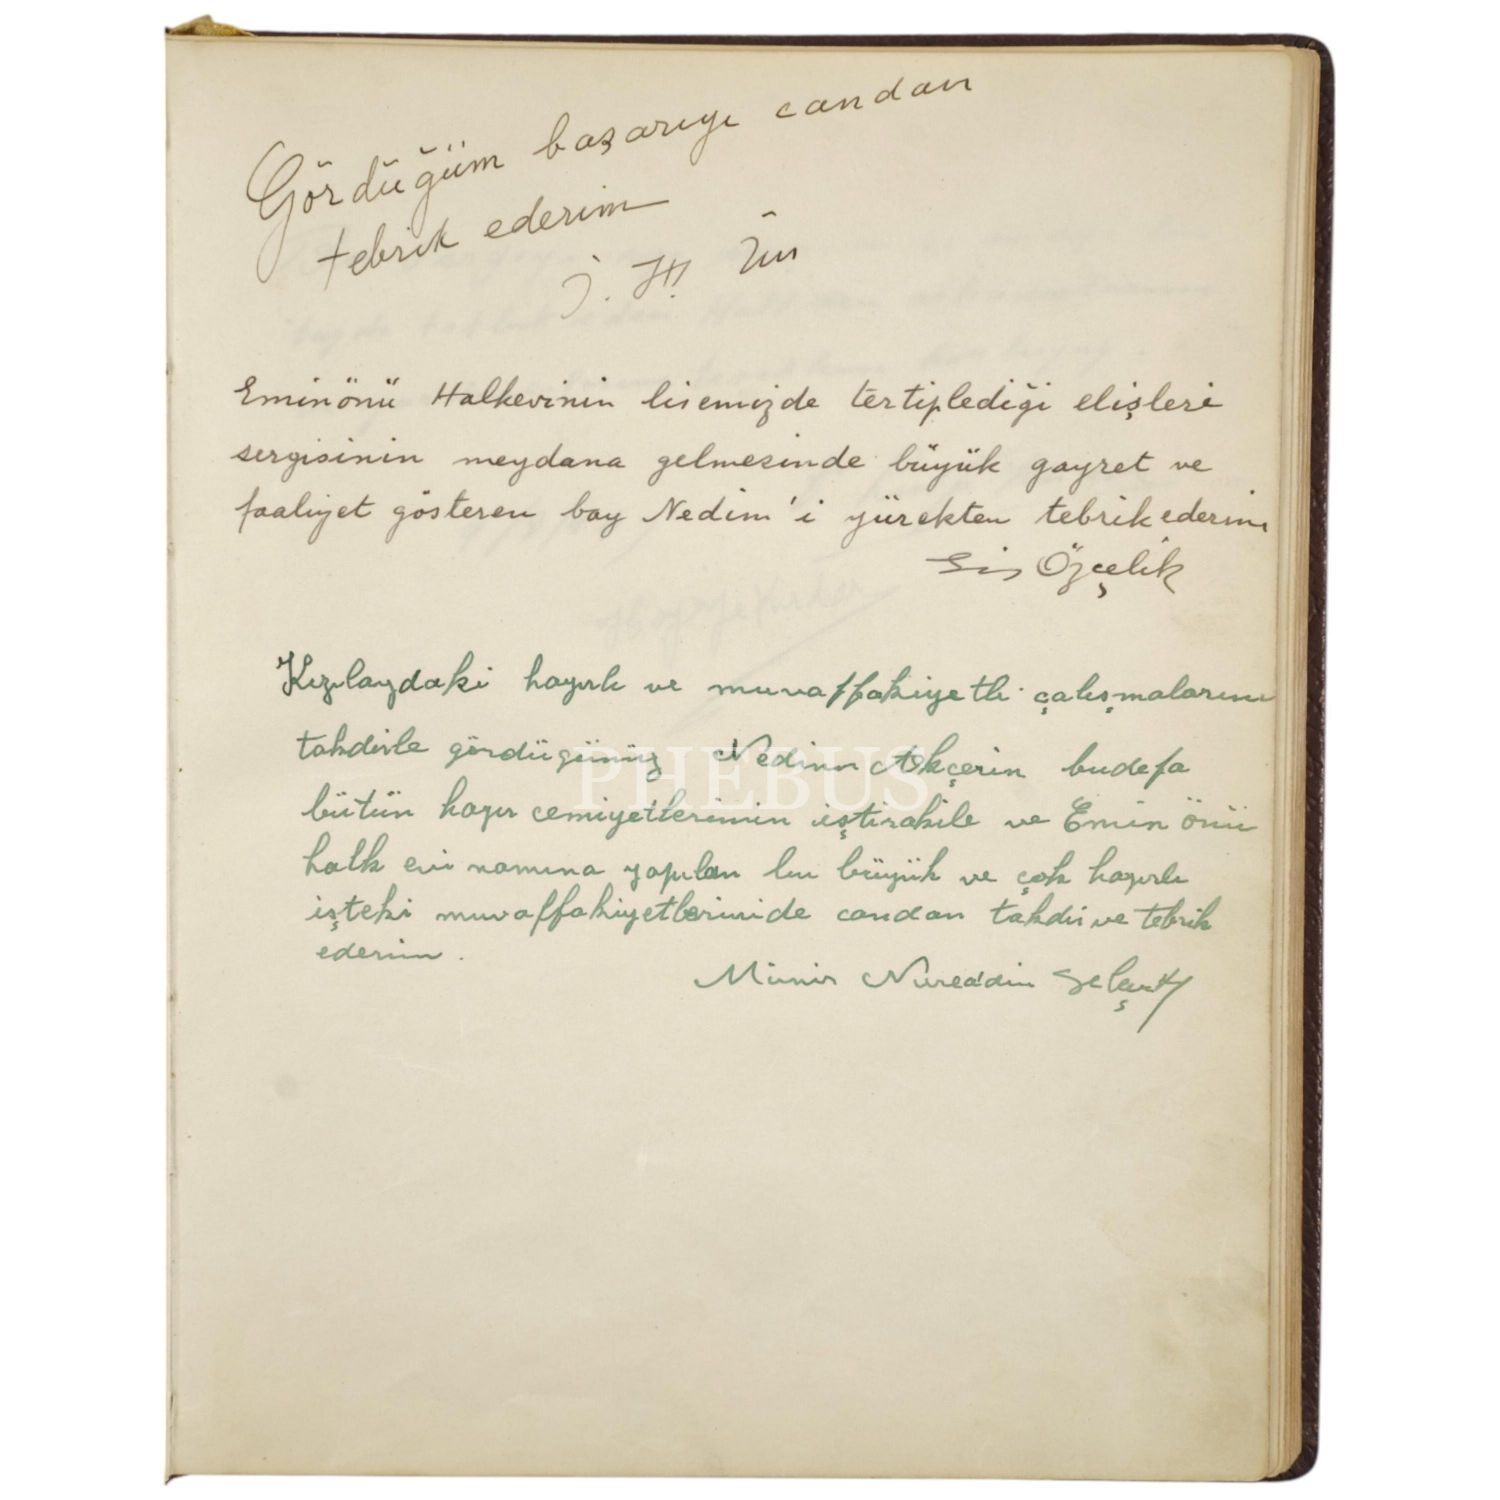 Gördüğüm başarıyı candan
tebrik ederim
İ. H.
Eminönü Halkevinin lisemizde tertiplediği elişleri
sergisinin meydana gelmesinde büyük gayret ve
faaliyet gösteren bay Nedim'i yürekten tebrik ederim
Özçelik
Kızılaydaki hayırlı ve muvaffakiyetli çalışmalarını
takdirle gördüğümüz Nedim Akçerin budefa
bütün hayır cemiyetlerinin iştirakile ve Emin önü
halk evi namına yapılan bu büyük ve çok hayırlı
işteki muvaffakiyetlerinide candan takdir ve tebrik
ederim.
Münir Nureddin Selçuk
PHEBUS